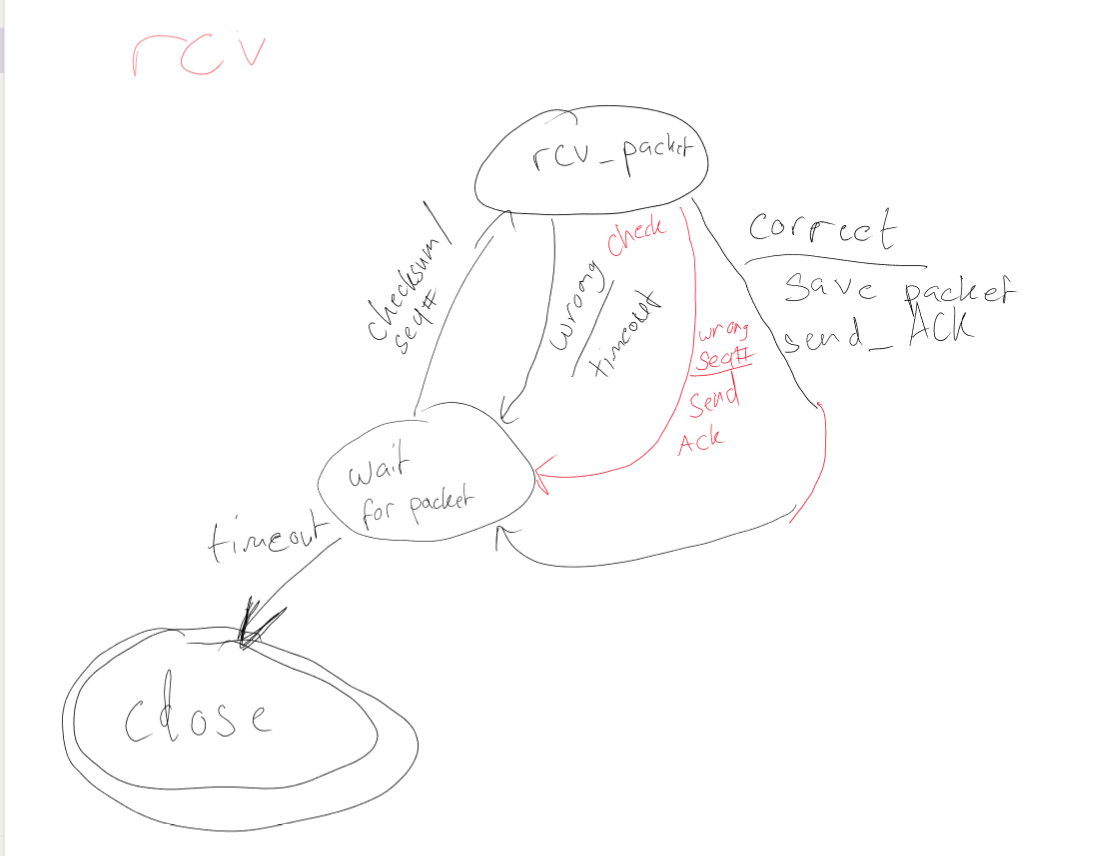 rcv
rcv_packet
checksum/
seq#
wrong
timeout
check
wrong
seq#
send
Ack
correct
save packet
send_ACK
wait
for packet
timeout
close